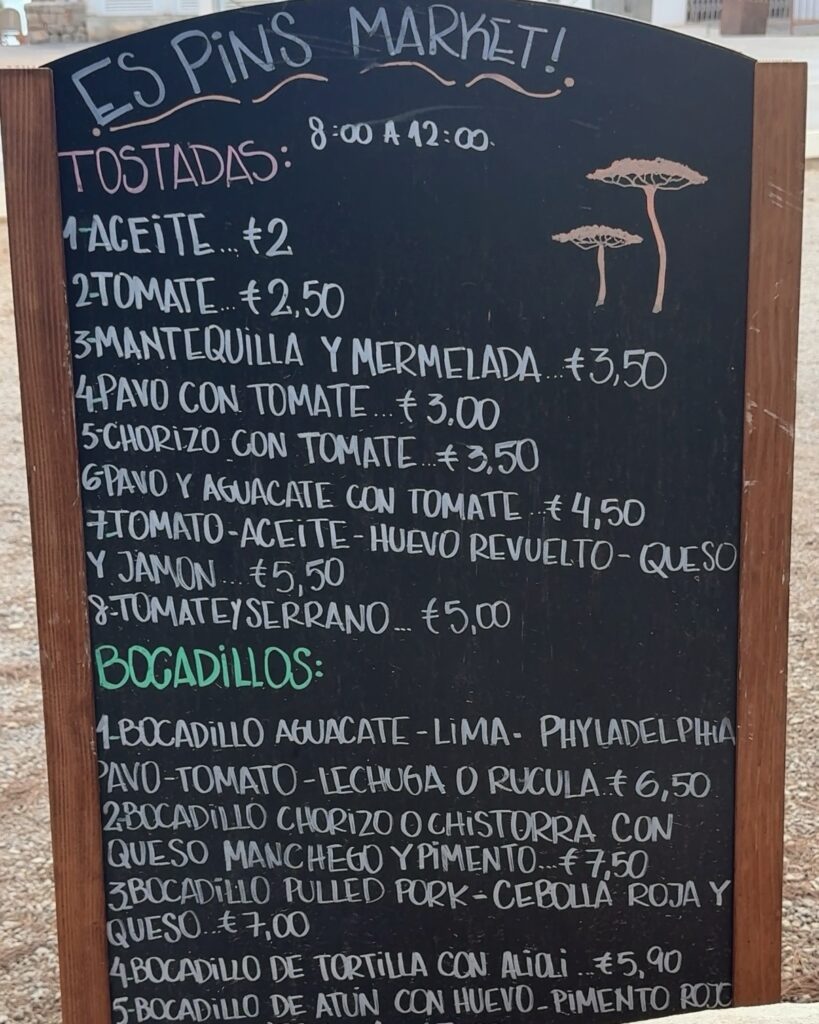 ES PINS MARKET!
8:00 A 12:00.
TOSTADAS:
1-ACEITE...€2
2-TOMATE...€2,50
3-MANTEQUILLA Y MERMELADA...€3,50
4-PAVO CON TOMATE...€3,00
5-CHORIZO CON TOMATE...€3,50
6-PAVO Y AGUACATE CON TOMATE...€4,50
7-TOMATO-ACEITE-HUEVO REVUELTO-QUESO
Y JAMON...€5,50
8-TOMATE Y SERRANO...€5,00
BOCADILLOS:
1-BOCADILLO AGUACATE-LIMA-PHYLADELPHIA
PAVO-TOMATO-LECHUGA O RUCULA.€6,50
2-BOCADILLO CHORIZO O CHISTORRA CON
QUESO MANCHEGO Y PIMENTO...€7,50
3-BOCADILLO PULLED PORK-CEBOLLA ROJA Y
QUESO..€7,00
4-BOCADILLO DE TORTILLA CON ALIOLI...€5,90
5-BOCADILLO DE ATUN CON HUEVO-PIMENTO ROJO